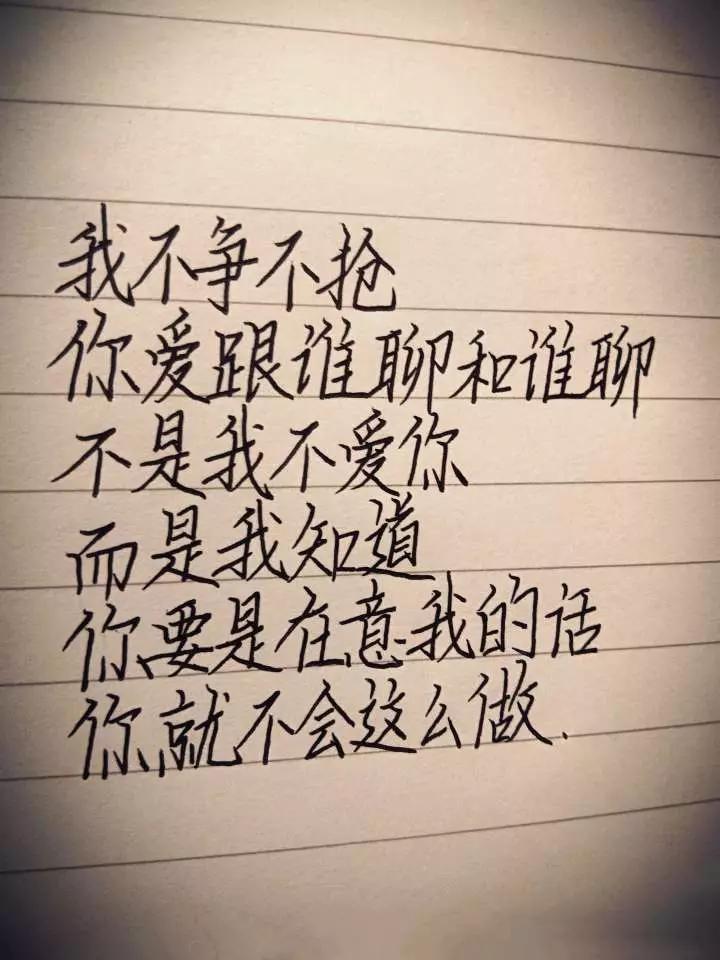 我不争不抢
你爱跟谁聊和谁聊
不是我不爱你
而是我知道
你要是在意我的话
你就不会这么做.